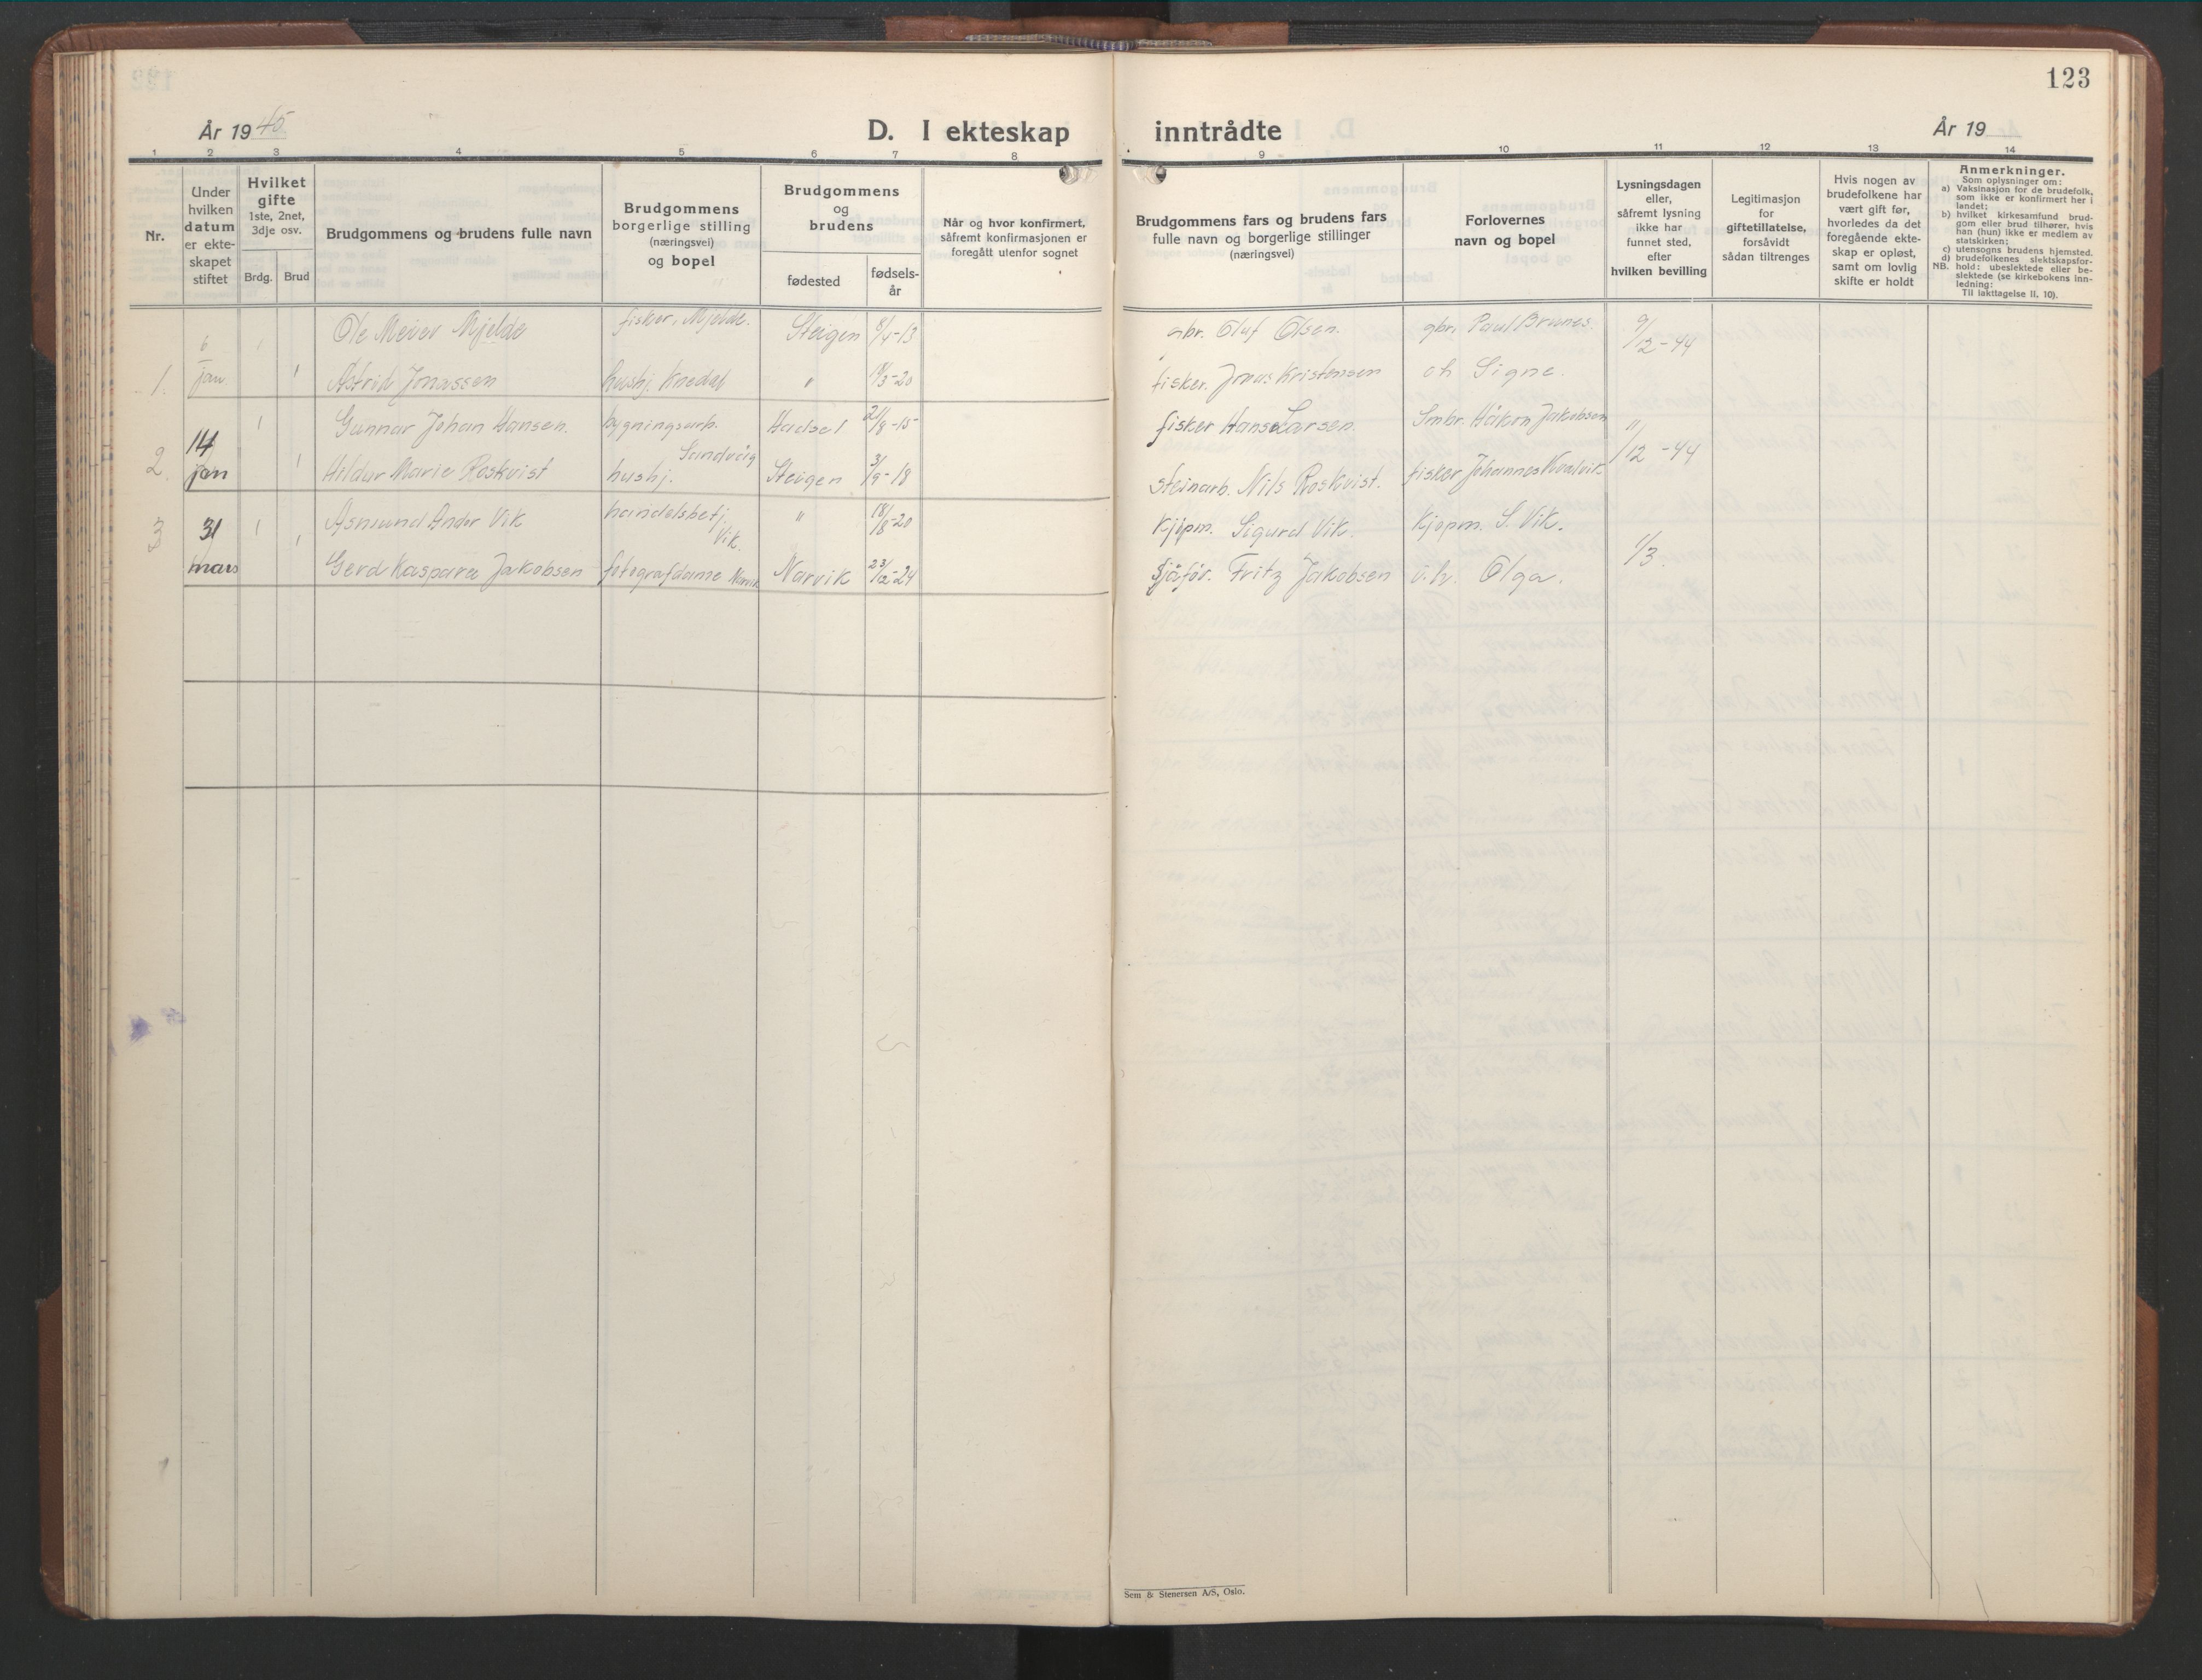 123
År 19 45
D. I ekteskap inntrådte
År 19
1 2 3 4 5 6 7 8 9 10 11 12 13 14
Nr.
Under
hvilken
datum
er ekte-
skapet
stiftet
Hvilket
gifte
1ste, 2net,
3dje osv.
Brdg. Brud
Brudgommens og brudens fulle navn
Brudgommens
borgerlige stilling
(næringsvei)
og bopel
Brudgommens
og
brudens
fødested
fødsels-
år
Når og hvor konfirmert,
såfremt konfirmasjonen er
foregått utenfor sognet
Brudgommens fars og brudens fars
fulle navn og borgerlige stillinger
(næringsvei)
Forlovernes
navn og bopel
Lysningsdagen
eller,
såfremt lysning
ikke har
funnet sted,
efter
hvilken bevilling
Legitimasjon
for
giftetillatelse,
forsåvidt
sådan tiltrenges
Hvis nogen av
brudefolkene har
vært gift før,
hvorledes da det
foregående ekte-
skap er opløst,
samt om lovlig
skifte er holdt
Anmerkninger.
Som oplysninger om:
a) Vaksinasjon for de brudefolk,
som ikke er konfirmert her i
landet;
b) hvilket kirkesamfund brud-
gom eller brud tilhører, hvis
han (hun) ikke er medlem av
statskirken;
c) utensogns brudens hjemsted.
d) brudefolkenes slektskapsfor-
NB. hold: ubeslektede eller be-
slektede (se kirkebokens inn-
ledning:
Til iakttagelse II. 10).
6 1 Ole Meier Mjelde fisker, Mjelde. Steigen 8/4-13 gbr. Oluf Olsen. gbr. Paul Brunes. 9/12-44
1. jan. 1 Astrid Jonassen hushj. Knedal " /3-20 fisker. Jonas Kristensen oh Signe.
14 1 Gunnar Johan Hansen. bygningsarb. Hadsel 21/8-15 fisker Hans Larsen. Smbr. Håkon Jakobsen "/12-44
Sandvåg
2. jan 1 Hildur Marie Roskvist hushj. Steigen 3/9-18 Steinarb. Nils Roskvist. fisker Johannes Kvalvik.
3 31 1 Asmund Andor Vik handelsbetj. " 18/8-20 Kjøpm. Sigurd Vik. Kjøpm. S. Vik. 1/3.
Vik.
mars 1 Gerd Kaspara Jakobsen fotografdame Narvik Narvik 23/12-24 Sjåfør. Fritz Jakobsen Olga.
Sem & Stenersen A/S, Oslo.